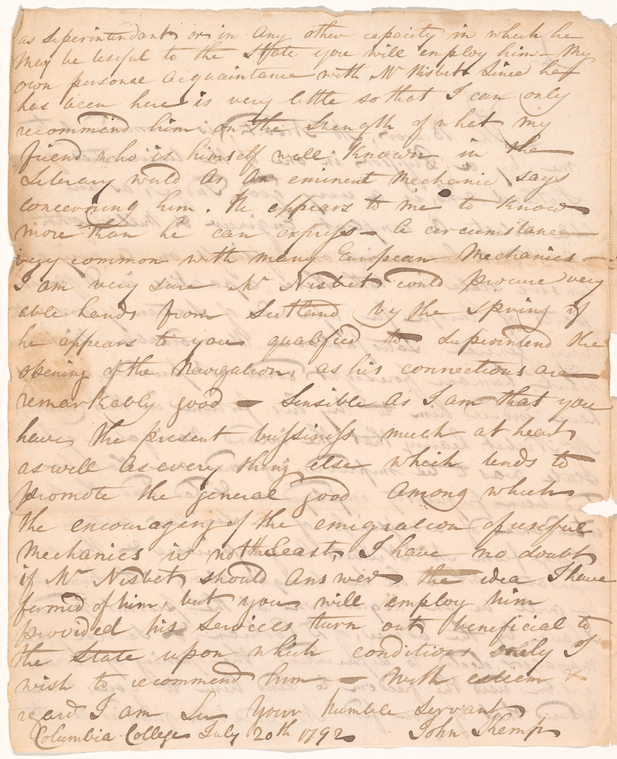 as Superintendant, or in any other capacity in which he
may be useful to the State you will employ him — My
own personal acquaintance with Mr Nisbet since he
has been here is very little so that I can only
recommend him on the strength of what my
friend who is himself well known in the
Literary world as an eminent Mechanic says
concerning him. He appears to me to know
more than he can express — a circumstance
very common with many European Mechanics —
I am very sure Mr Nisbet could procure very
able hands from Scotland by the Spring if
he appears to you qualified to superintend the
opening of the Navigation, as his connections are
remarkably good — Sensible as I am that you
have the present bussiness much at heart
as well as every thing else which tends to
promote the general good among which
the encouraging of the emigration of useful
Mechanics is not the least, I have no doubt
if Mr Nisbet should answer the idea I have
formed of him, but you will employ him
provided his services turn out beneficial to
the State upon which condition only I
wish to recommend him — With esteem &
regard I am Sir Your humble Servant
Columbia College July 20th 1792 John Kemp